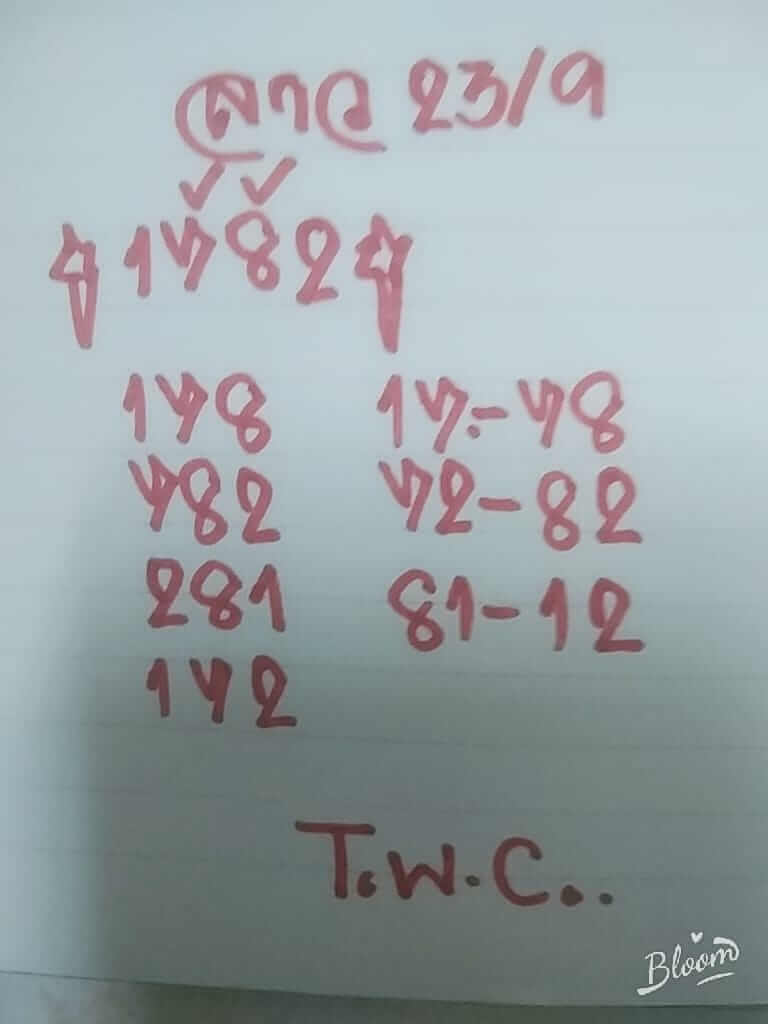 ลาว 23/9
✓ ✓
1782
178 17.-78
782 72-82
281 81-12
172
T.W.C..
Bloom